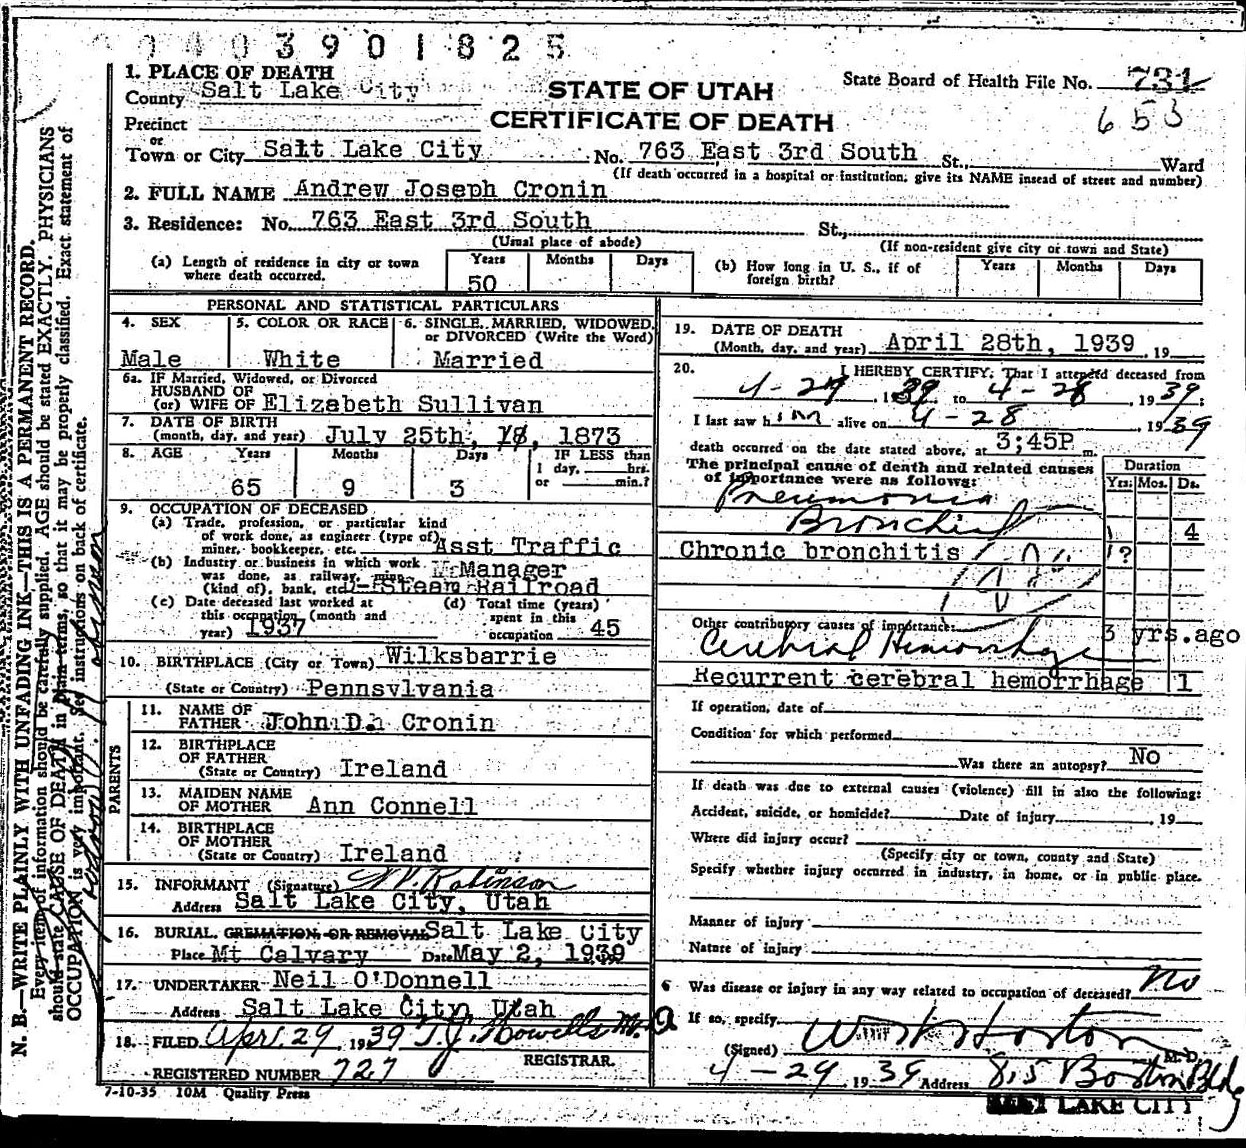 00403901825
1. PLACE OF DEATH
County Salt Lake City
STATE OF UTAH
State Board of Health File No. 731
653
Precinct
CERTIFICATE OF DEATH
or
Town or City Salt Lake City No. 763 East 3rd South St., Ward
(If death occurred in a hospital or institution, give its NAME instead of street and number)
2. FULL NAME Andrew Joseph Cronin
3. Residence: No. 763 East 3rd South St.,
(Usual place of abode) (If non-resident give city or town and State)
(a) Length of residence in city or town where death occurred. Years 50 Months Days
(b) How long in U. S., if of foreign birth? Years Months Days
PERSONAL AND STATISTICAL PARTICULARS
4. SEX Male
5. COLOR OR RACE White
6. SINGLE, MARRIED, WIDOWED, or DIVORCED (Write the Word) Married
6a. IF Married, Widowed, or Divorced
HUSBAND OF
(or) WIFE OF Elizabeth Sullivan
7. DATE OF BIRTH
(month, day, and year) July 25th, 18, 1873
8. AGE Years 65 Months 9 Days 3 IF LESS than 1 day, hrs. or min.?
9. OCCUPATION OF DECEASED
(a) Trade, profession, or particular kind
of work done, as engineer (type of)
miner, bookkeeper, etc. Asst Traffic
(b) Industry or business in which work Manager
was done, as railway, mine
(kind of), bank, etc. Steam Railroad
(c) Date deceased last worked at
this occupation (month and
year) 1937
(d) Total time (years)
spent in this
occupation 45
10. BIRTHPLACE (City or Town) Wilksbarrie
(State or Country) Pennsylvania
PARENTS
11. NAME OF
FATHER John D. Cronin
12. BIRTHPLACE
OF FATHER
(State or Country) Ireland
13. MAIDEN NAME
OF MOTHER Ann Connell
14. BIRTHPLACE
OF MOTHER
(State or Country) Ireland
15. INFORMANT (Signature) Robinson
Address Salt Lake City, Utah
16. BURIAL CREMATION OR REMOVAL Salt Lake City
Place Mt Calvary Date May 2, 1939
17. UNDERTAKER Neil O'Donnell
Address Salt Lake City, Utah
18. FILED Apr. 29 1939 T.J. Howells M.D.
REGISTRAR.
REGISTERED NUMBER 727
7-10-35 10M Quality Press
19. DATE OF DEATH
(Month, day, and year) April 28th, 1939, 19
20. I HEREBY CERTIFY, That I attended deceased from
4-27 1939 to 4-28, 1939;
I last saw him alive on 4-28, 1939
death occurred on the date stated above, at 3;45P m.
The principal cause of death and related causes
of importance were as follows:
Duration
Yrs. Mos. Ds.
Pneumonia
Bronchial 4
Chronic bronchitis 1?
Other contributory causes of importance: 3 yrs. ago
Cerebral Hemorrhage
Recurrent cerebral hemorrhage 1
If operation, date of
Condition for which performed
Was there an autopsy? No
If death was due to external causes (violence) fill in also the following:
Accident, suicide, or homicide? Date of injury, 19
Where did injury occur?
(Specify city or town, county and State)
Specify whether injury occurred in industry, in home, or in public place.
Manner of injury
Nature of injury
6 Was disease or injury in any way related to occupation of deceased? No
If so, specify
(Signed) M. D.
4-29 1939 Address 815 Boston Bldg
SALT LAKE CITY
N. B.—WRITE PLAINLY WITH UNFADING INK—THIS IS A PERMANENT RECORD.
Every item of information should be carefully supplied. AGE should be stated EXACTLY. PHYSICIANS
should state CAUSE OF DEATH in plain terms, so that it may be properly classified. Exact statement of
OCCUPATION is very important. See instructions on back of certificate.